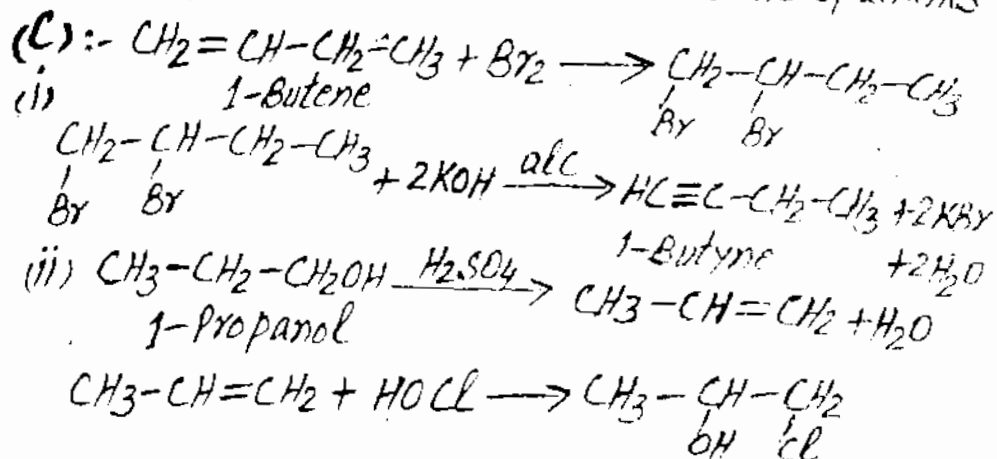 (C):- CH2=CH-CH2-CH3 + Br2 ⟶ CH2-CH-CH2-CH3
(i) 1-Butene Br Br
CH2-CH-CH2-CH3 + 2KOH alc⟶ HC≡C-CH2-CH3 + 2KBr
Br Br 1-Butyne +2H2O
(ii) CH3-CH2-CH2OH H2SO4⟶ CH3-CH=CH2 + H2O
1-Propanol
CH3-CH=CH2 + HOCl ⟶ CH3-CH-CH2
OH Cl